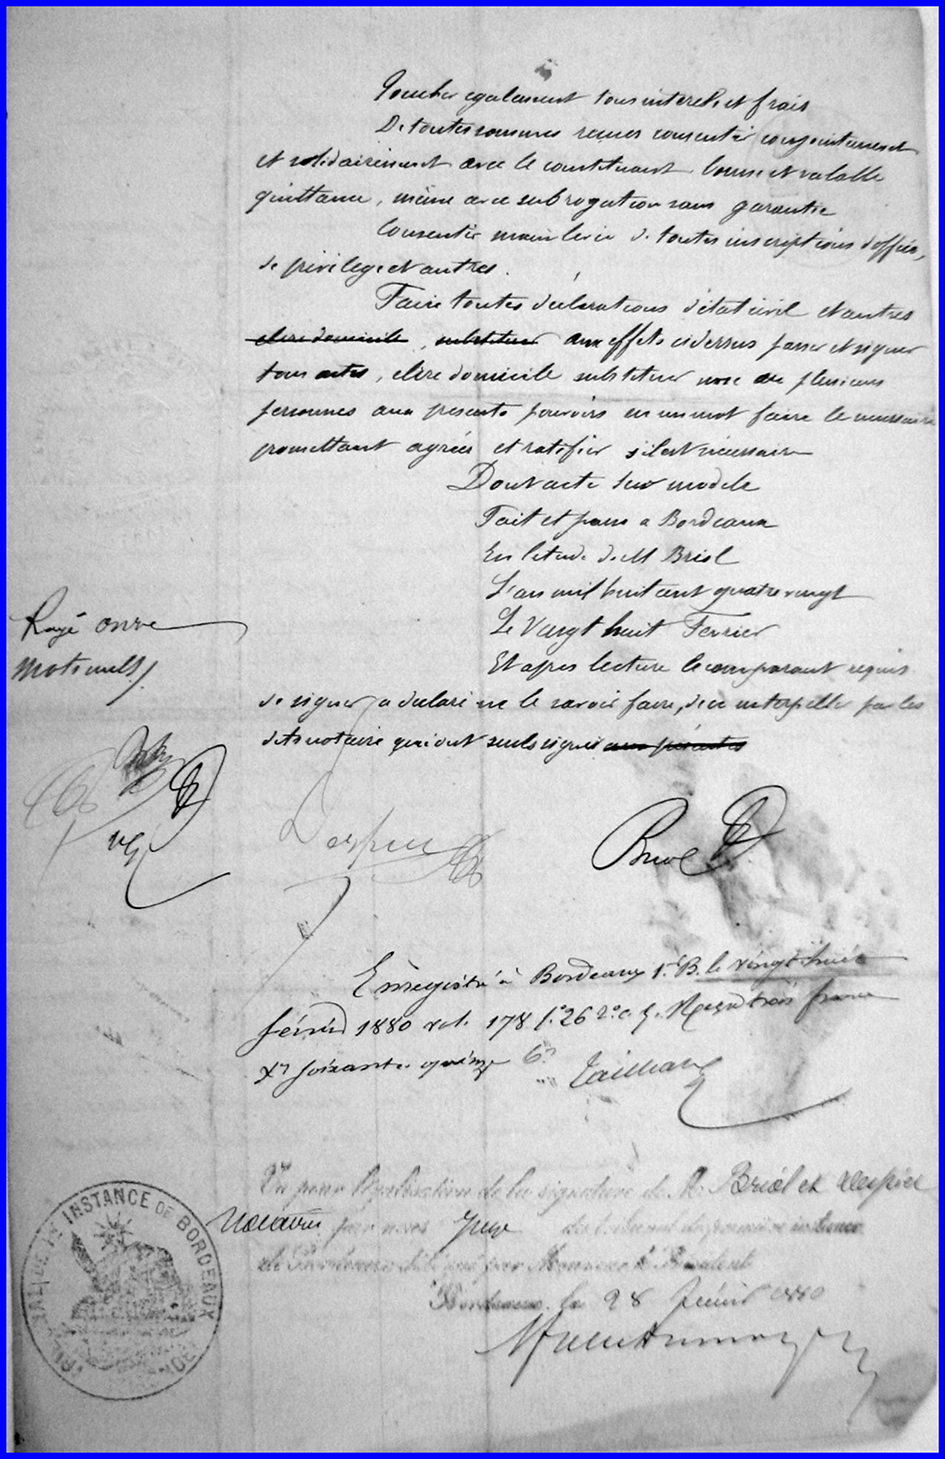 Toucher egalement tous interets et frais
De toutes sommes recues consentir conjointement
et solidairement avec le constituant bonne et valable
quittance, même avec subrogation sans garantie
Consentir main levée de toutes inscriptions d'office,
de privilege et autres.
Faire toutes déclarations d'état civil et autres
elire domicile, substituer aux effets ci dessus passer et signer
tous actes, elire domicile substituer une ou plusieurs
personnes aux presents pouvoirs en un mot faire le necessaire
promettant agréer et ratifier s'il est nécessaire
Dont acte sur modele
Fait et passé a Bordeaux
En l'etude de M Briol
L'an mil huit cent quatre vingt
Le Vingt huit Fevrier
Et apres lecture le comparant requis
de signer a declaré ne le savoir faire, de ce interpellé par les
dits notaire qui ont seuls signé
Rayé onze
mots nuls
Despiet
Briol
Enregistré à Bordeaux 1er B. le vingt huit
février 1880 vol. 178 f. 26 r. c. 5. Reçu trois francs
Xes soixante quinze c.
Vu pour légalisation de la signature de M. Briol et Despiet
Notaires par nous Juge du tribunal de première instance
de Bordeaux délégué par Monsieur le Président
Bordeaux, le 28 Février 1880
TRIBUNAL DE 1re INSTANCE DE BORDEAUX